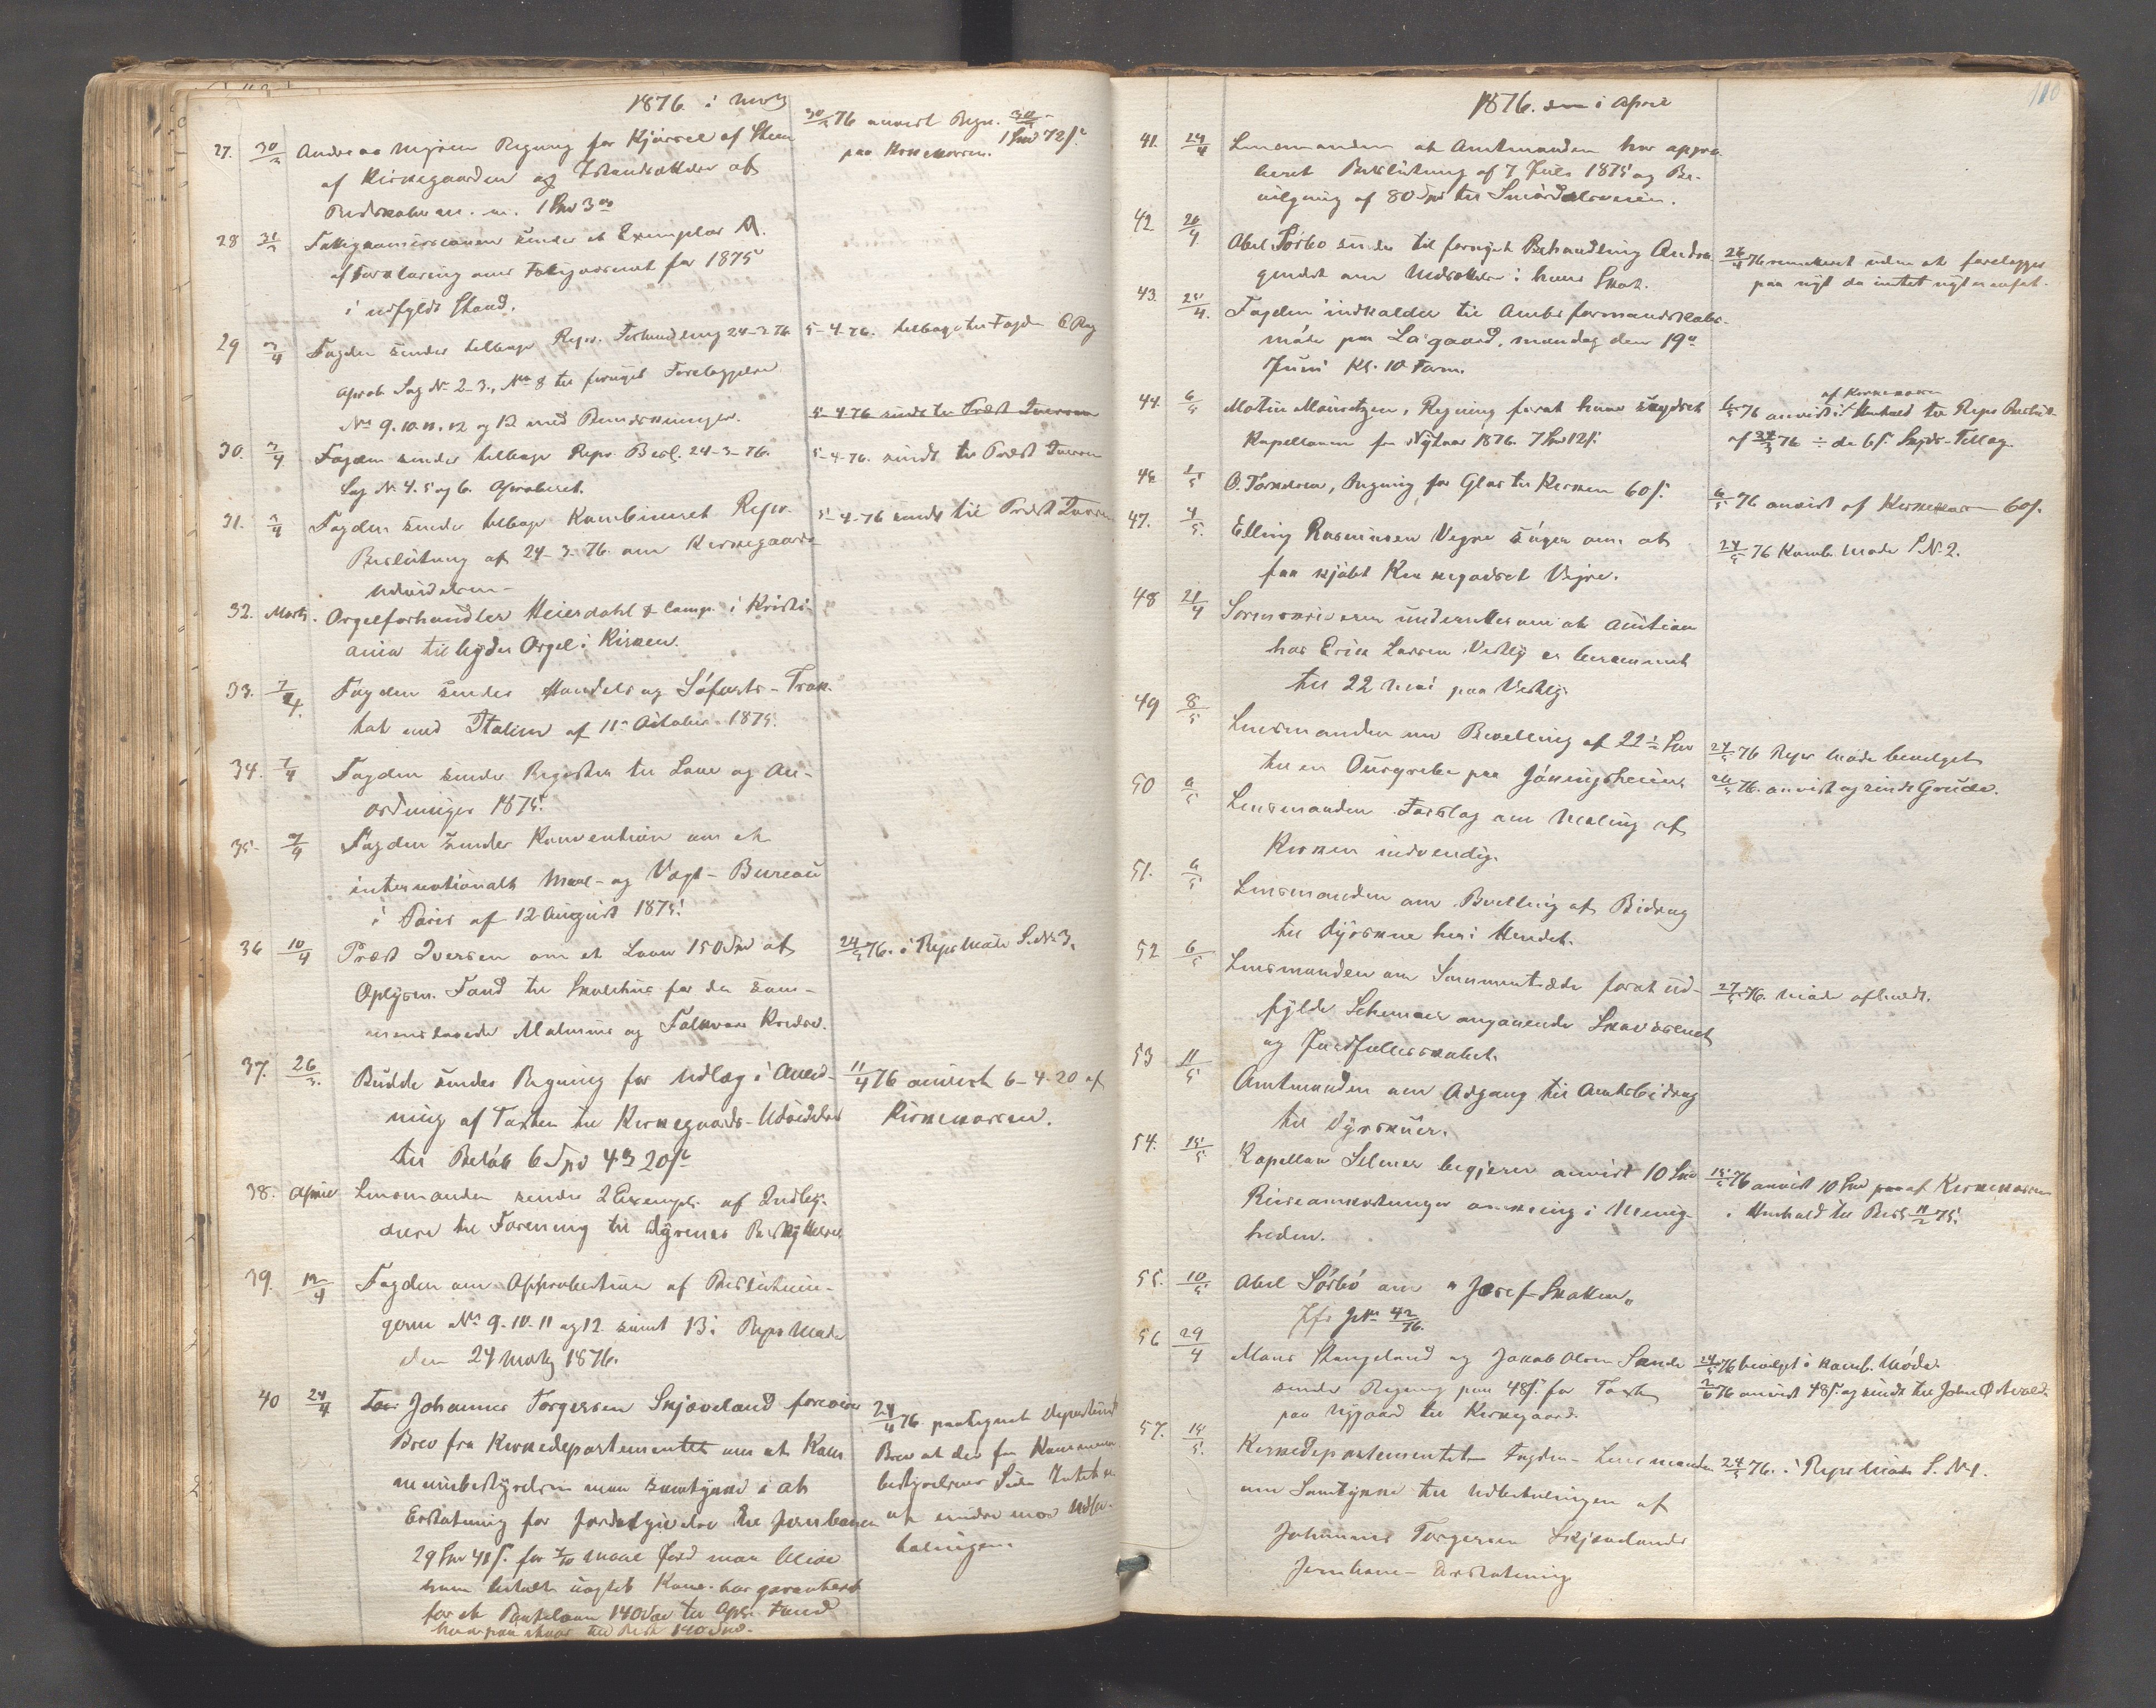 1876. i Marts
27. 30/3 Andreas Mysen Regning for Kjørsel af Steen
af Kirkegaarden og Istandsættelse af
Redskaber m. m. 1 Spd 3
30/3 76 anvist Regn.
paa Kirkekassen. 1 Spd 72 s.
28 31/3 Fattigkommissionen sender et Exemplar A.
af Forklaring om Fattigvæsenet for 1875
i udfyldt Stand.
29 3/4 Fogden sender tilbage Repr. Forhandling 24-3-76
Aprob. Sag No 2-3., No 8 til fornyet Foreleggelse
No 9. 10. 11. 12 og 13 med Bemerkninger.
5-4-76. tilbage til Fogden
5-4-76 sendt til Præst Iversen
30. 3/4 Fogden sender tilbage Repr. Besl. 24-3-76.
Sag No 4. 5 og 6. Aproberet.
5-4-76. sendt til Præst Iversen
31. 3/4 Fogden sender tilbage Kombineret Repr.
Beslutning af 24-3-76. om Kirkegaards
Udvidelsen-
5-4-76 sendt til Præst Iversen
32. Marts. Orgelforhandler Heierdahl & Comp. i Kristi-
ania tilbyder Orgel i Kirken.
33. 7/4. Fogden sender Handels og Søfarts-Trak-
tat med Italien af 11 October 1875.
34. 7/4 Fogden sender Register til Love og An-
ordninger 1875.
35- 9/4 Fogden sender Konvention om et
internationalt Maal- og Vægt-Bureau
i Paris af 12 August 1875.
36 10/4 Præst Iversen om et Laan 150 Spd af
Oplysn. Fond til Skolehus for de sam-
menslagede Malmim og Folkvord Kredse.
24/5 76. i Reprs Møde S. No 3.
37. 26/3. Budde sender Regning for Udlæg i Anled-
ning af Taxten til Kirkegaards-Udvidelse
til Beløb 6 Spd 4 20 s
11/4 76 anvist 6-4-20 af
Kirkekassen.
38. April Lensmanden sender 2 Exempl. af Indby-
delse til Forening til Dyrenes Beskyttelse
39. 19/4 Fogden om Approbation af Beslutnin-
gerne No 9. 10. 11 og 12. samt 13 i Reprs Møde
den 24 Marts 1876.
40 24/4 Johannes Torgersen Skjæveland foreviser
Brev fra Kirkedepartementet om at Kom
munebestyrelsen maa samtykke i at
Erstatning for Jordafgivelse til Jernbanen
29 Spd 41 s. for 7/10 Maal Jord maa blive
ham betalt uagtet Kom. har garanteret
for et Pantelaan 140 Spd til Opl. Fond
24/4 76 paategnet Departement
Brev at der fra Kommune
bestyrelsens Side Intet er
at erindre mod Udbe-
talingen.
1876. i April
110
41. 24/4 Lensmanden at Amtmanden har appro-
beret Beslutning af 7 Juli 1875 og Be-
vilgning af 80 Spd til Smørdalsveien.
42 26/4 Abel Sørbø sender til fornyet Behandling Andra
gendet om Nedsættelse i hans Skat.
26/4 76 remitteret uden at forelegges
paa nyt da intet nyt er anført.
43. 25/4. Fogden indkalder til Amtsformandskabs-
møde paa Lagaard, mandag den 19
Juni Kl. 10 Form.
44. 6/5 Motin Mauritzen, Regning forat have skydset
Kapellanen fra Nytaar 1876. 7 Spd 12 s.
6/5 76 anvist af Kirkekassen i Henhold til Reprs Beslut.
af 24/3 76 ÷ de 6 s. Skyds-Tillæg.
46 1/5 O. Torkelsen, Regning for Glas til Kirken 60 s.
6/5 76 anvist af Kirkekassen 60 s.
47. 4/5. Elling Rasmussen Vegre søger om at
faa kjøbt Kirkegodset Vegre.
24/5 76 Komb. Møde S. No 2.
48 21/4 Sorenskriveren underretter om at Auction
hos Erik Larsen Vestly er berammet
til 22 Mai paa Vestly.
49 8/5 Lensmanden om Bevilling af 22 1/2 Spd
til en Ourgrøbe paa Høiningsheien.
24/5 76 Reprs Møde bevilget
26/5 76. anvist og sendt Gruda.
50 6/5 Lensmanden Forslag om Maling af
Kirken indvendig.
51. 6/5 Lensmanden om Bevilling af Bidrag
til Dyrskue her i Herredet.
52 6/5 Lensmanden om Sammentræde forat ud-
fylde Schemaer angaaende Skovvæsenet
og Jordfællesskabet.
27/5 76. Møde afholdt.
53 11/5 Amtmanden om Adgang til Amtsbidrag
til Dyrskuer.
54. 15/5 Kapellan Selmer begjærer anvist 10 Spd
Reiseomkostninger omkring i Menig-
heden.
15/5 76 anvist 10 Spd af Kirkekassen
i Henhold til Besl. 11/2 75.
55. 10/5 Abel Sørbø om "Josef-Skatten"
Jfr. J No 42/76.
56 29/4 Mons Stangeland og Jakob Olsen Sande
sender Regning paa 48 s. for Taxten
paa Nygaard til Kirkegaard.
24/5 76 bevilget i Komb. Møde.
2/6 76 anvist 48 s. og sendt til John Østvold.
57. 15/5. Kirkedepartementet-Fogden-Lensmanden
om Samtykke til Udbetalingen af
Johannes Torgersen Skjævelands
Jernbane-Erstatning
24/5 76. i Reprs Møde S. No 1.